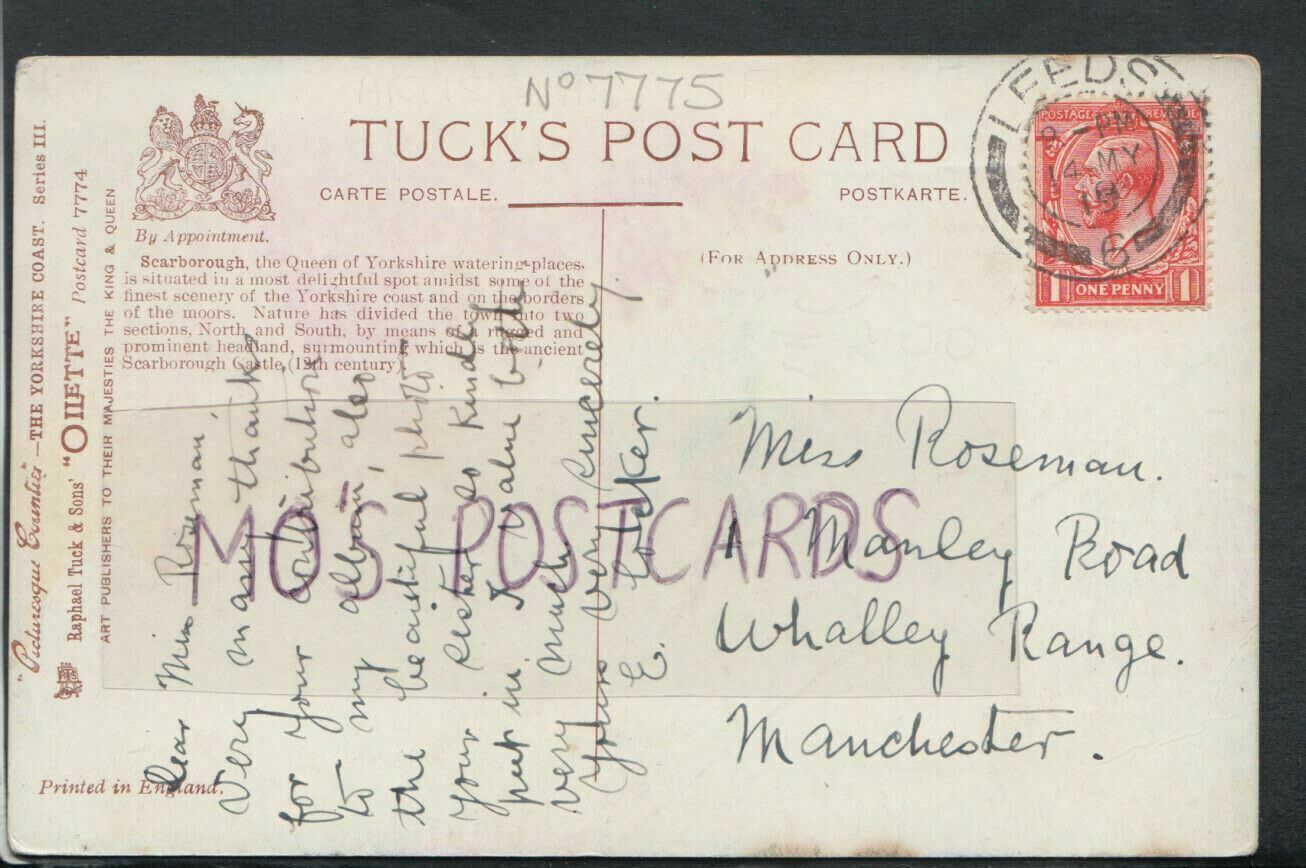 Nº 7775
TUCK'S POST CARD
CARTE POSTALE.
POSTKARTE.
By Appointment.
(FOR ADDRESS ONLY.)
Scarborough, the Queen of Yorkshire watering-places,
is situated in a most delightful spot amidst some of the
finest scenery of the Yorkshire coast and on the borders
of the moors. Nature has divided the town into two
sections, North and South, by means of a rugged and
prominent headland, surmounting which is the ancient
Scarborough Castle, (12th century).
"Picturesque Counties"—THE YORKSHIRE COAST. Series III.
Raphael Tuck & Sons' "OILETTE" Postcard 7774
ART PUBLISHERS TO THEIR MAJESTIES THE KING & QUEEN
Printed in England.
LEEDS
9 - PM
4 MY
19
6
POSTAGE REVENUE
1 ONE PENNY 1
Dear Miss Roseman,
Very many thanks
for your contributions
to my album, also
the beautiful photo
your sister so kindly
put in. I value both
very much
Yours very sincerely,
E. Locker.
Miss Roseman.
1 Manley Road
Whalley Range.
Manchester.
MO'S POSTCARDS